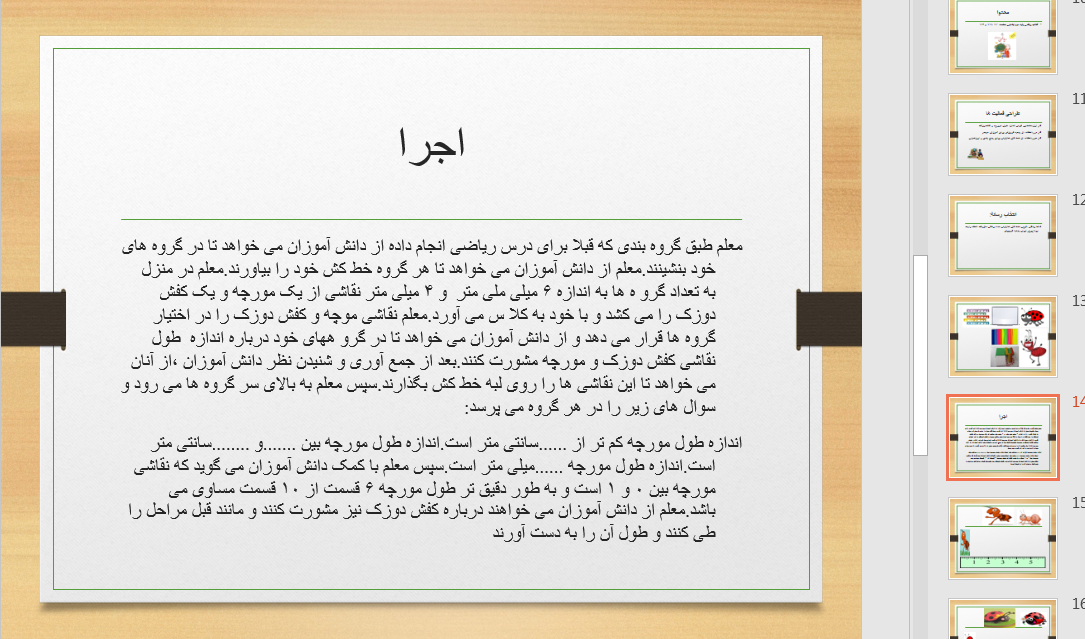 اجرا
معلم طبق گروه بندی که قبلا برای درس ریاضی انجام داده از دانش آموزان می خواهد تا در گروه های
خود بنشینند.معلم از دانش آموزان می خواهد تا هر گروه خط کش خود را بیاورند.معلم در منزل
به تعداد گرو ه ها به اندازه ۶ میلی ملی متر  و ۴ میلی متر نقاشی از یک مورچه و یک کفش
دوزک را می کشد و با خود به کلا س می آورد.معلم نقاشی موچه و کفش دوزک را در اختیار
گروه ها قرار می دهد و از دانش آموزان می خواهد تا در گرو ههای خود درباره اندازه  طول
نقاشی کفش دوزک و مورچه مشورت کنند.بعد از جمع آوری و شنیدن نظر دانش آموزان ،از آنان
می خواهد تا این نقاشی ها را روی لبه خط کش بگذارند.سپس معلم به بالای سر گروه ها می رود و
سوال های زیر را در هر گروه می پرسد:
اندازه طول مورچه کم تر از ......سانتی متر است.اندازه طول مورچه بین .......و ........سانتی متر
است.اندازه طول مورچه ......میلی متر است.سپس معلم با کمک دانش آموزان می گوید که نقاشی
مورچه بین ۰ و ۱ است و به طور دقیق تر طول مورچه ۶ قسمت از ۱۰ قسمت مساوی می
باشد.معلم از دانش آموزان می خواهند درباره کفش دوزک نیز مشورت کنند و مانند قبل مراحل را
طی کنند و طول آن را به دست آورند
محتوا
11
طراحی فعالیت ها
12
انتخاب رسانه:
13
14
اجرا
15
1 2 3 4 5
16